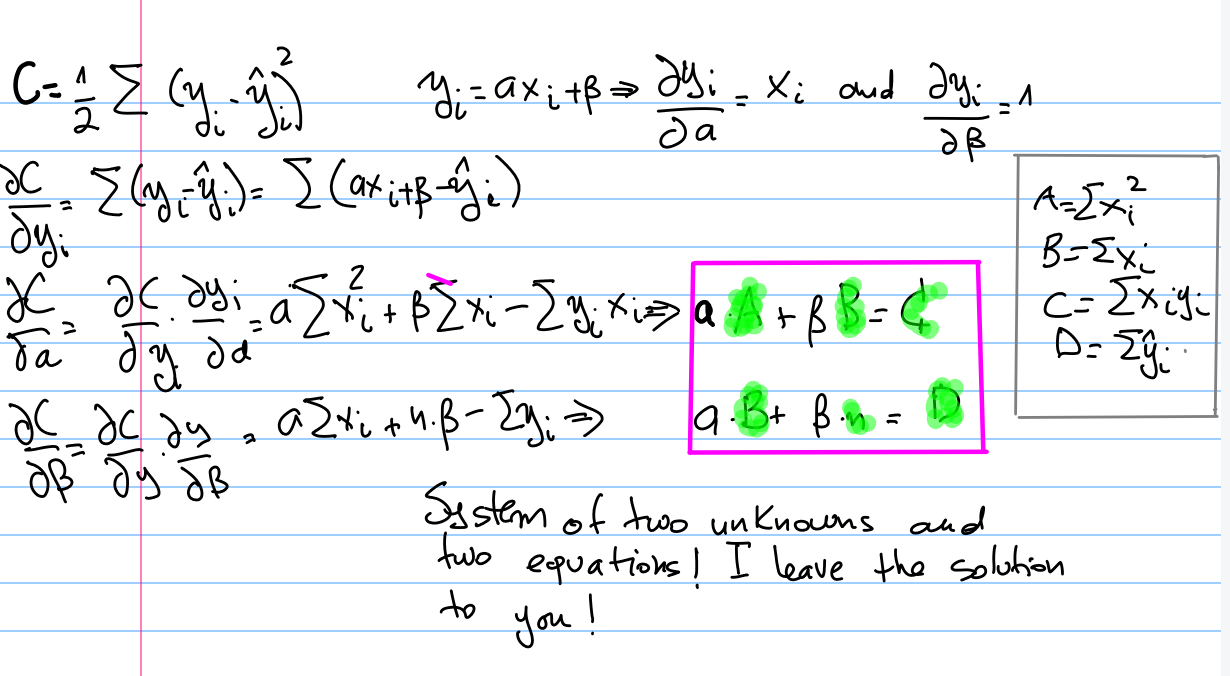 C = 1/2 Σ (yᵢ - ŷᵢ)² yᵢ = axᵢ + β ⇒ ∂yᵢ/∂a = xᵢ and ∂yᵢ/∂β = 1
∂C/∂yᵢ = Σ(yᵢ - ŷᵢ) = Σ(axᵢ + β - ŷᵢ)
∂C/∂a = ∂C/∂yᵢ · ∂yᵢ/∂a = a Σxᵢ² + β Σxᵢ - Σyᵢxᵢ ⇒ a·A + βB = C
∂C/∂β = ∂C/∂y · ∂y/∂β = aΣxᵢ + n·β - Σyᵢ ⇒ a·B + β·n = D
A = Σxᵢ²
B = Σxᵢ
C = Σxᵢyᵢ
D = Σŷᵢ
System of two unknowns and
two equations! I leave the solution
to you!